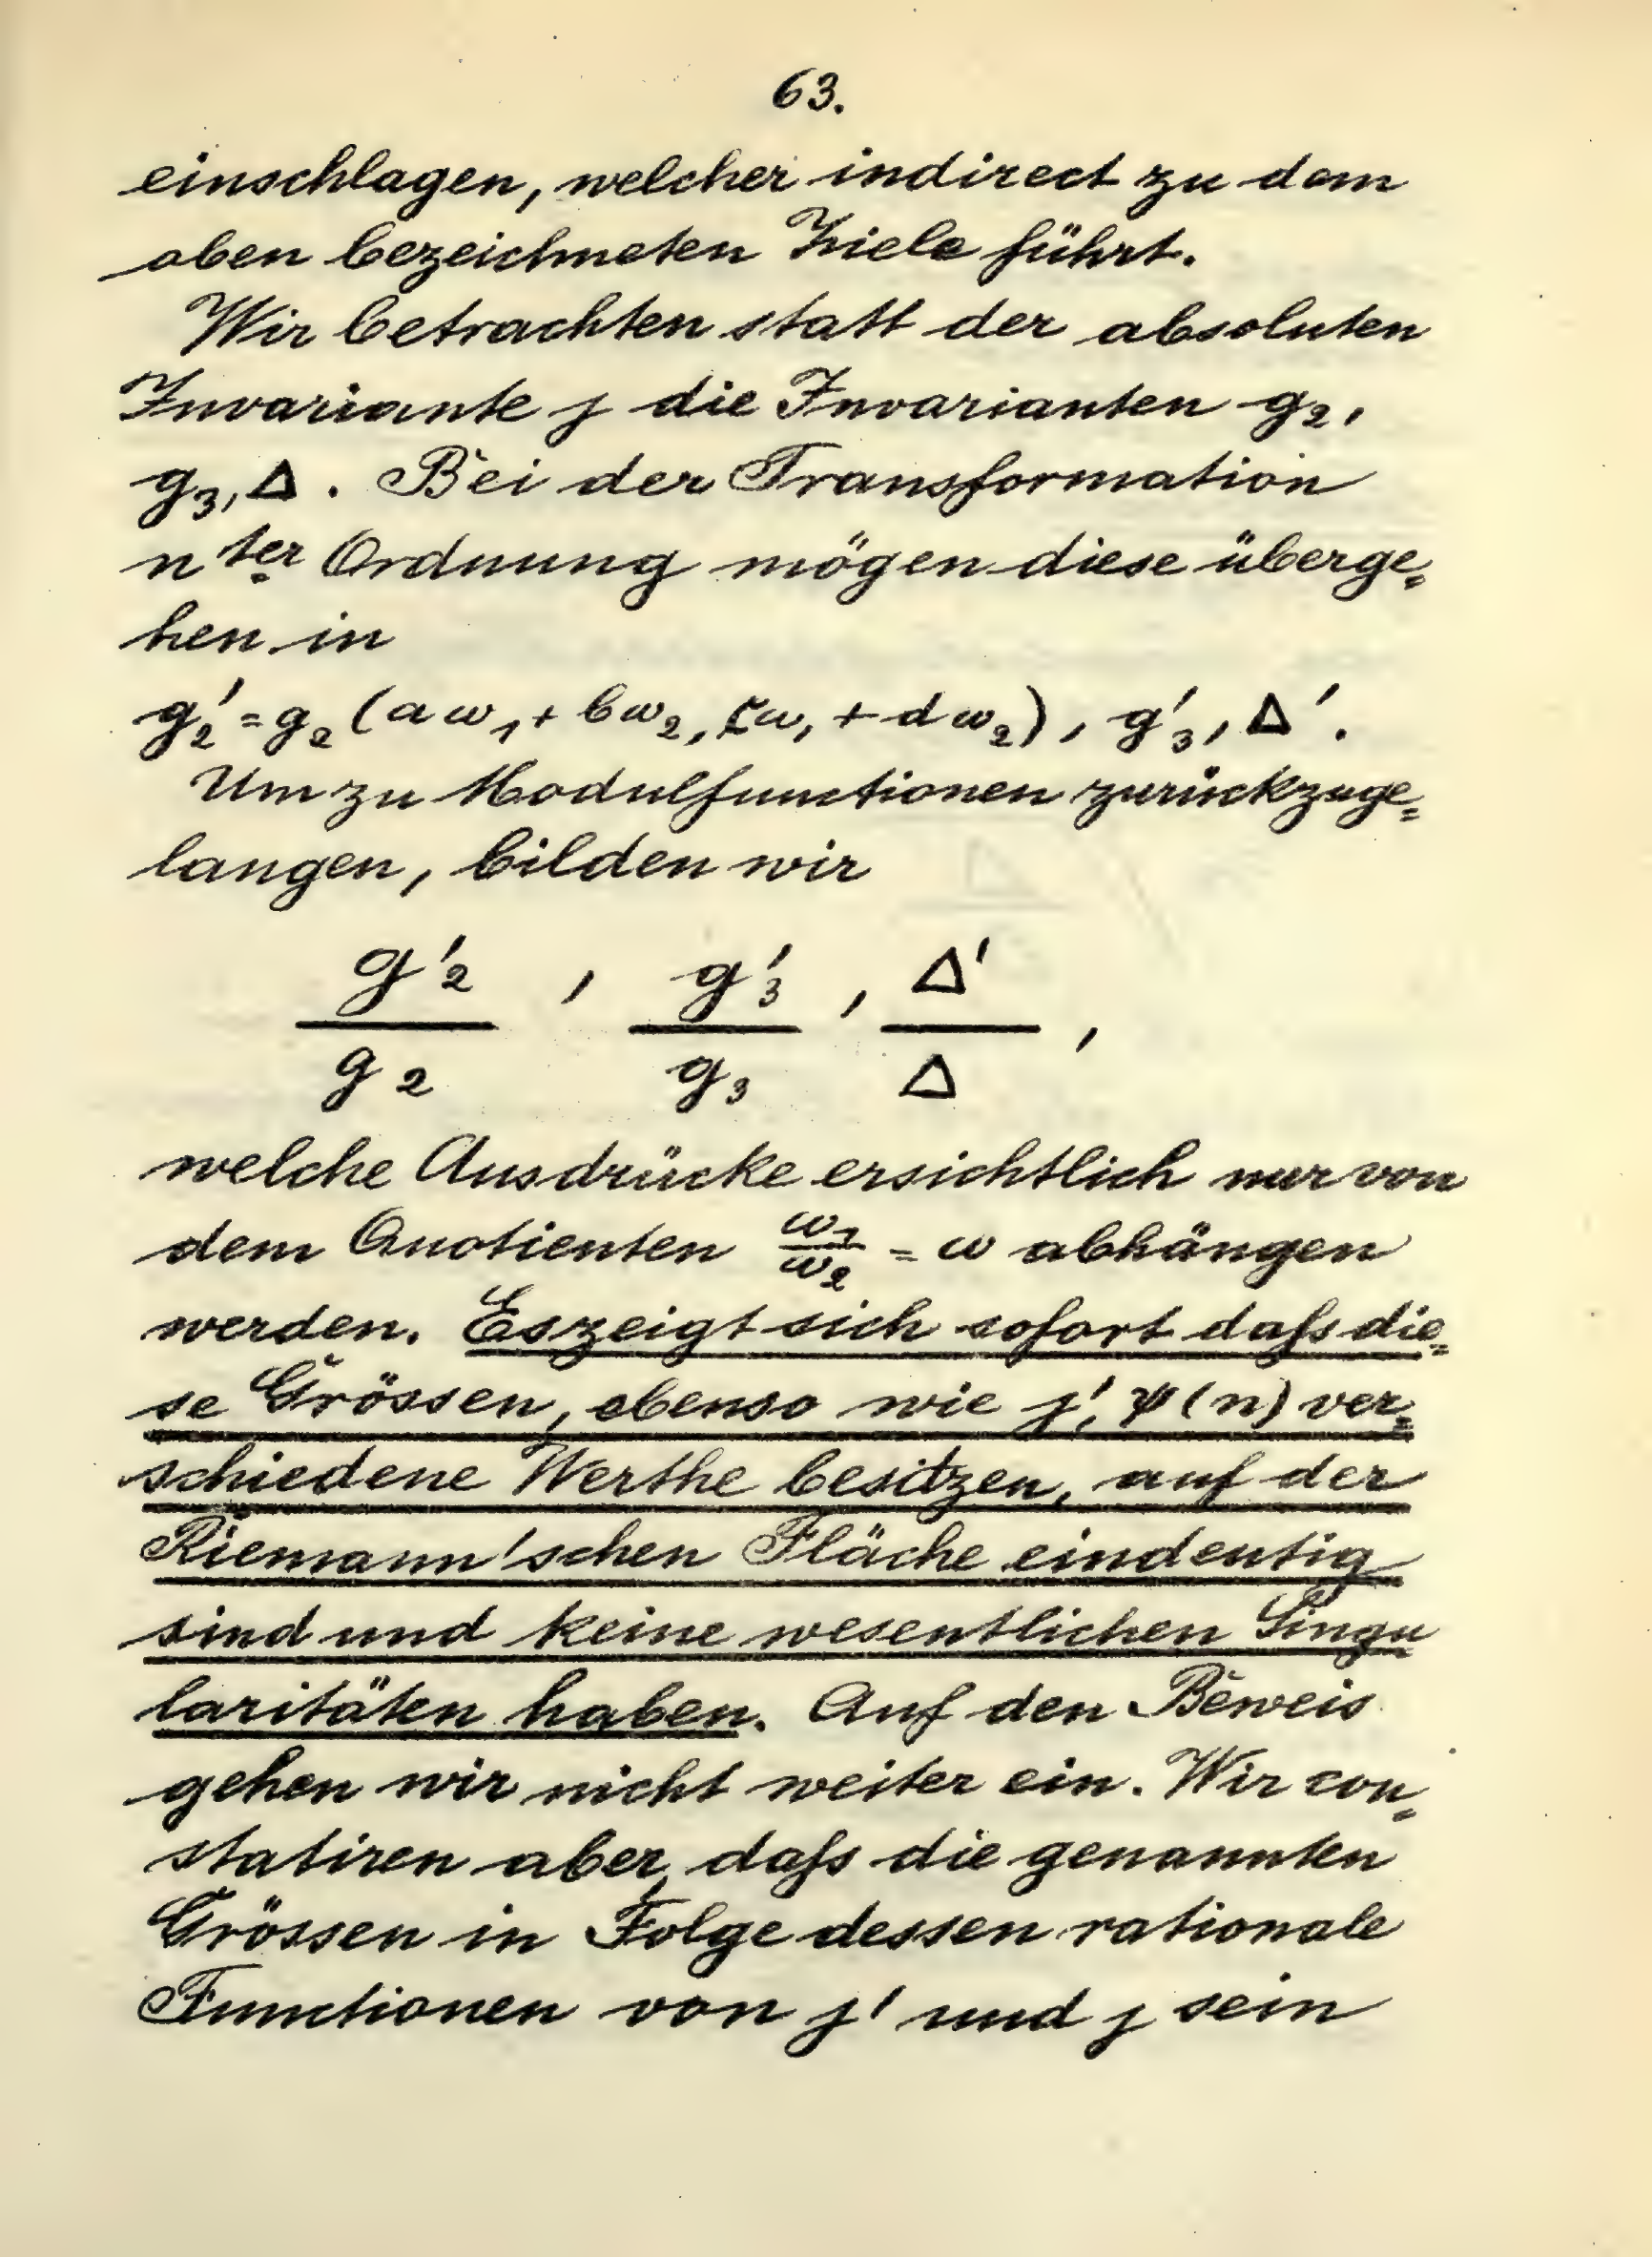 63.
einschlagen, welcher indirect zu dem
oben bezeichneten Ziele führt.
Wir betrachten statt der absoluten
Invariante j die Invarianten g₂,
g₃, Δ. Bei der Transformation
nᵗᵉʳ Ordnung mögen diese überge=
hen in
g₂' = g₂ (aω₁ + bω₂, cω₁ + dω₂), g₃', Δ'.
Um zu Modulfunctionen zurückzuge=
langen, bilden wir
g₂'/g₂ , g₃'/g₃ , Δ'/Δ ,
welche Ausdrücke ersichtlich nur von
dem Quotienten ω₁/ω₂ = ω abhängen
werden. Es zeigt sich sofort daſs die=
se Grössen, ebenso wie j', ψ(n) ver=
schiedene Werthe besitzen, auf der
Riemann'schen Fläche eindeutig
sind und keine wesentlichen Singu
laritäten haben. Auf den Beweis
gehen wir nicht weiter ein. Wir con=
statiren aber, daſs die genannten
Grössen in Folge dessen rationale
Functionen von j' und j sein